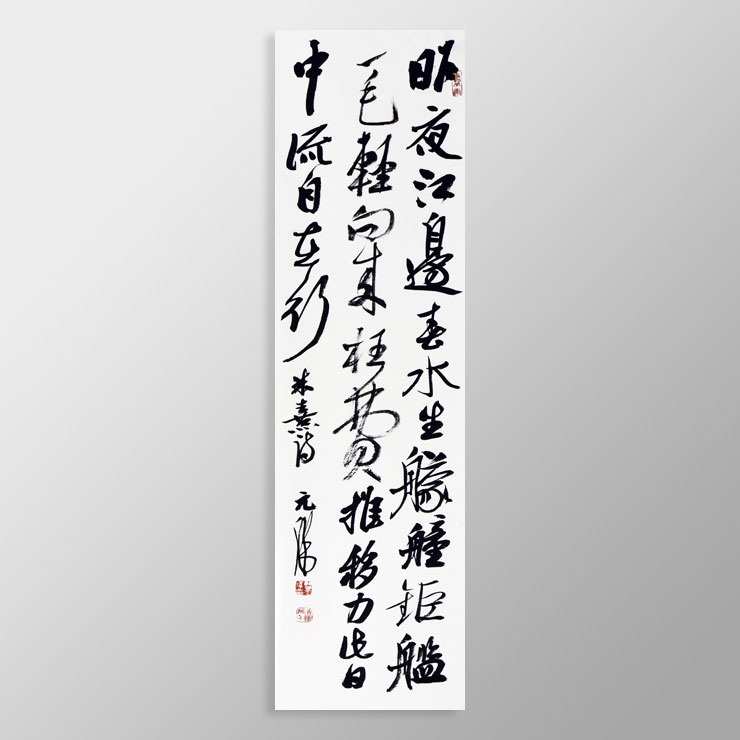 昨夜江邊春水生艨艟鉅艦
一毛輕向来枉費推移力此日
中流自在行
朱熹詩 元